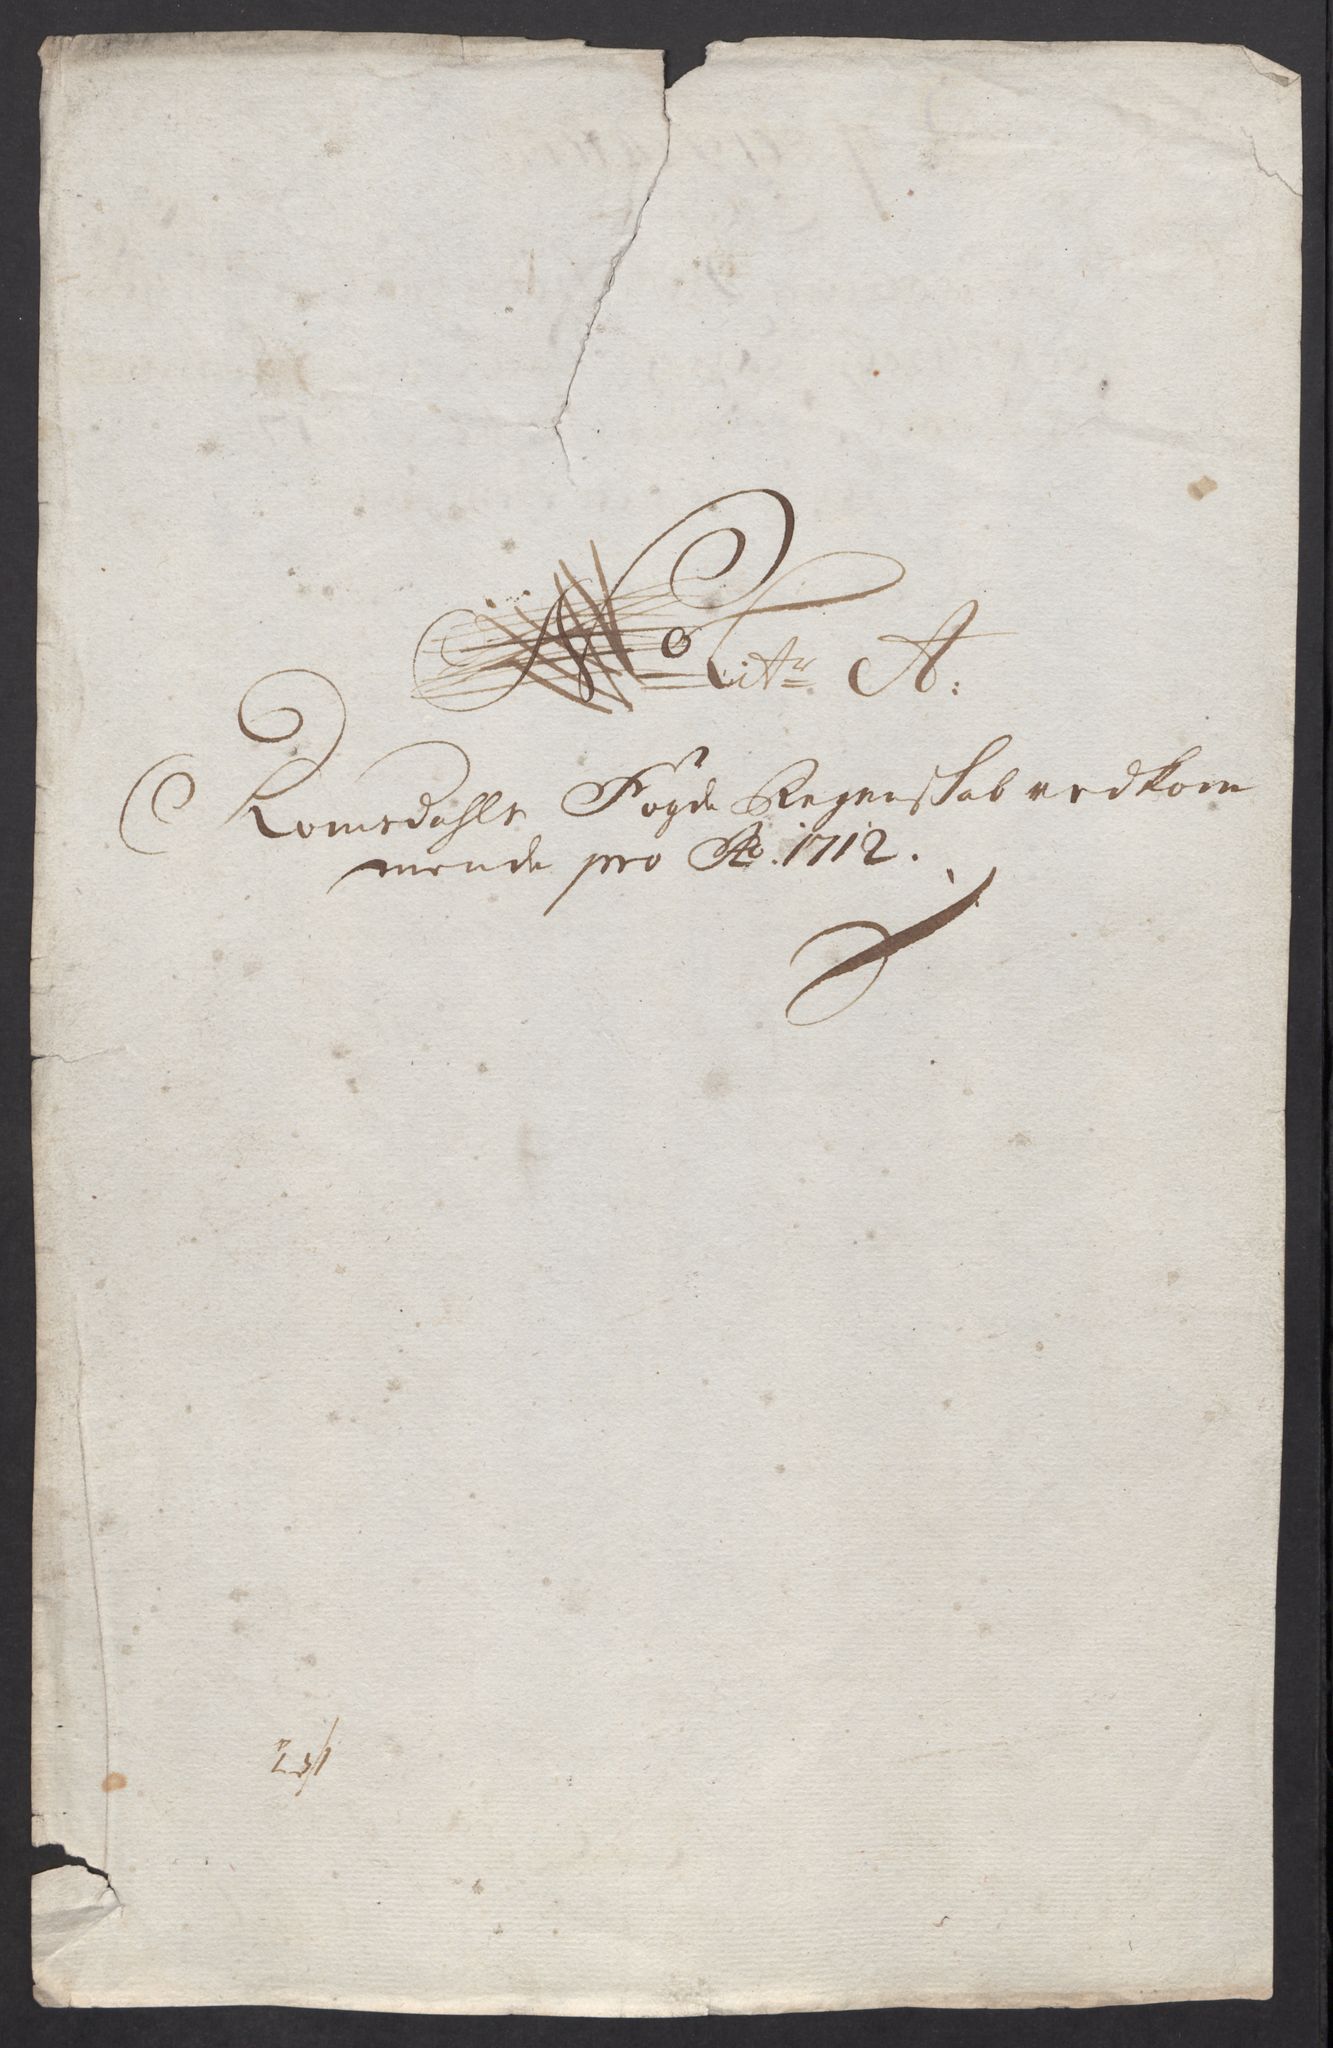 No Litr A:
Romsdahls Fogde Regenskab vedkom
mende pro Ao. 1712.